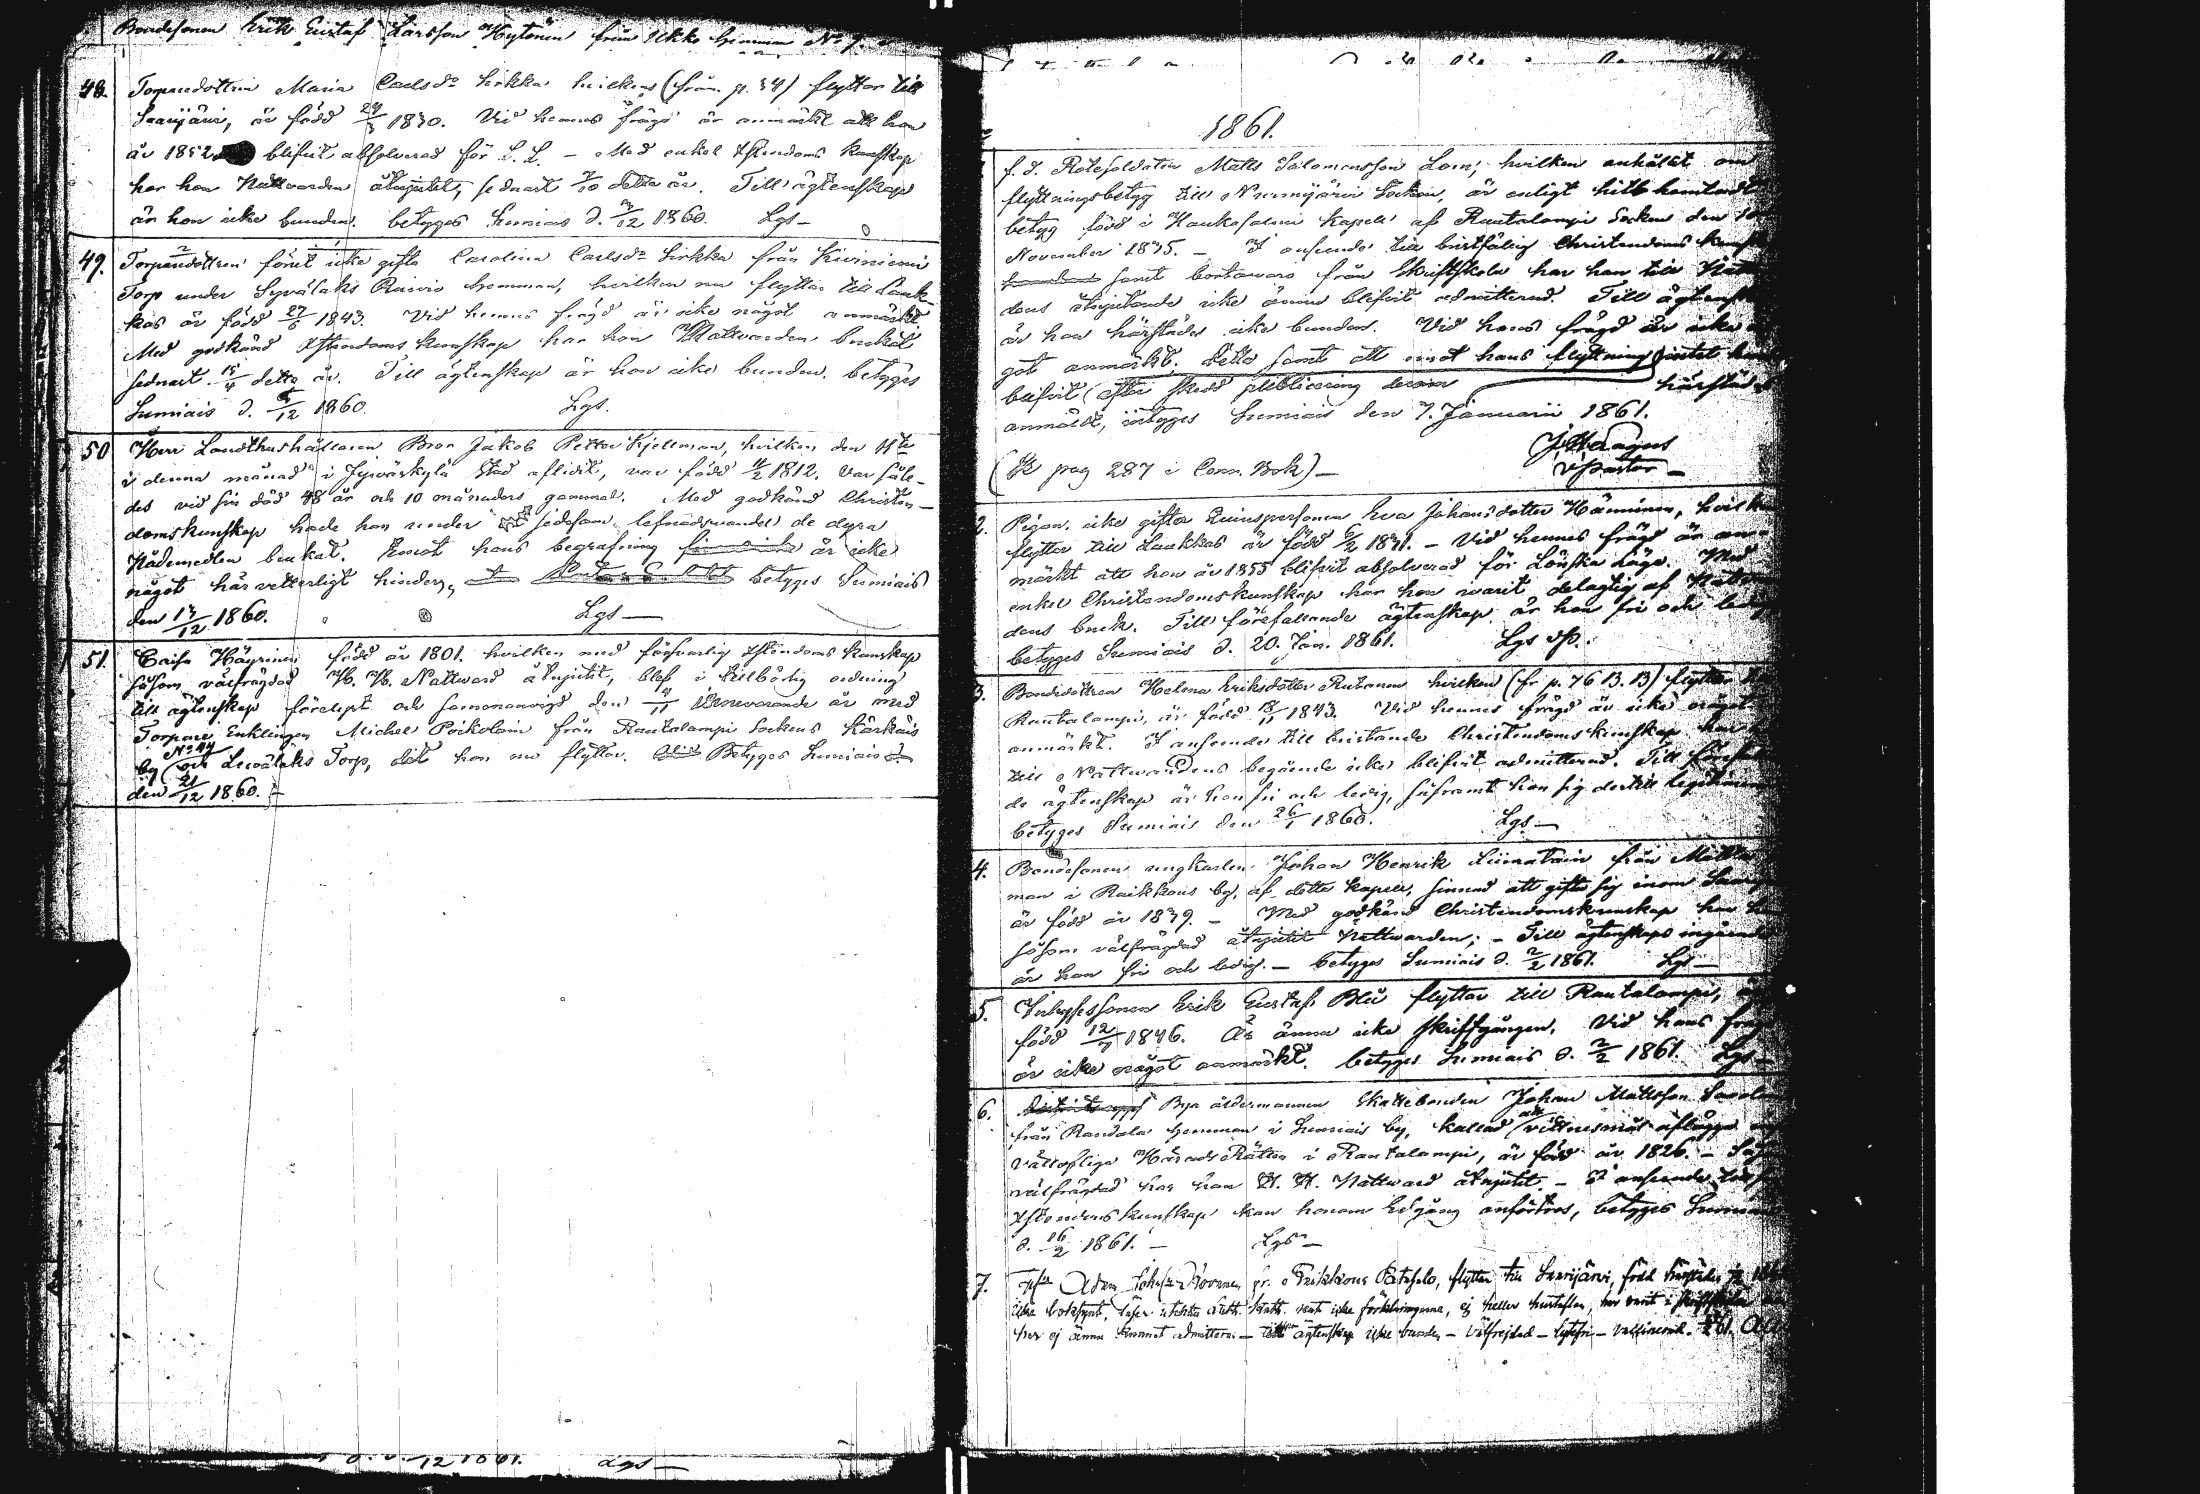 Bondesonen Erik Gustaf Larsson Hytönen från Ukko hemman No 7.
48. Torparedottren Maria Carlsdr Sirkka hvilken (från p. 34) flyttar till
Saarijärvi, är född 24/3 1830. Vid hennes frägd är anmärkt att hon
år 1852 blifvit absolverad för L. L. - Med enkel Xstendoms kunskap
har hon Nattvarden åtnjutit, sednast 7/10 detta år. Till ägtenskap
är hon icke bunden. betyges Sumiais d. 3/12 1860. Lgs-
49. Torparedottren förut icke gifta Carolina Carlsdr Sirkka från Kiviniemi
Torp under Syvälaks Ruuvio hemman, hvilken nu flyttar till Lauk-
kas är född 27/6 1843. Vid hennes frägd är icke något anmärkt
Med godkänd Xstendoms kunskap har hon Nattvarden brukat
sednast 15/4 detta år. Till ägtenskap är hon icke bunden. betyges
Sumiais d. 9/12 1860. Lgs.
50 Herr Landthushållaren Bror Jakob Petter Kjellman, hvilken den 11te
i denna månad i Jyväskylä Stad aflidit, var född 11/2 1812. Var såle-
des vid sin död 48 år och 10 månaders gammal. Med godkänd Christen-
domskunskap hade han under sedesam lefnadsvandel de dyra
Nådemedlen brukat. Emot hans begrafning är icke
något här vetterligt hinder, betyges Sumiais
den 13/12 1860. Lgs-
51. Caisa Häyrinen född år 1801. hvilken med försvarlig Xstendoms Kunskap
såsom välfrägdad H. H. Nattvard åtnjutit, blef i tillbörlig ordning
till ägtenskap förelyst och sammanvigd den 4/11 innevarande år med
Torpare Enklingen Michel Poikolain från Rautalampi Sockens Kärkäis
by No 44 och Levälaks Torp, dit hon nu flyttar. Betyges Sumiais
den 21/12 1860.
12 1861. Lgs-
1861.
f. d. Rotesoldaten Matts Salomonsson Lom, hvilken anhållit om
flyttningsbetyg till Nurmijärvi Socken, är enligt hitb hemtadt
betyg född i Hankasalmi Kapell af Rautalampi Socken den
November 1835. - I anseende till bristfällig Christendoms kunsk
samt bortavaro från Skriftskola har han till Natt
dens åtnjutande icke ännu blifvit admitterad. Till ägtensk
är han härstädes icke bunden. Vid hans frägd är icke
got anmärkt. Detta samt att emot hans flyttning intet
blifvit (efter skedd publicering derom härstädes
anmäldt, intyges Sumiais den 7. Januarii 1861.
v. pastor-
(Se pag 287 i Comm. Bok)-
2. Pigan, icke gifta Qvinspersonen Eva Johansdotter Hänninen, hvilken
flyttar till Laukkas är född 6/2 1831. - Vid hennes frägd är an-
märkt att hon år 1855 blifvit absolverad för Lönska Läge. Med
enkel Christendomskunskap har hon warit delagtig af Nattvar
dens bruk. Till förefallande ägtenskap är hon fri och ledig
betyges Sumiais d. 20. Jan. 1861. Lgs vP.
3. Bondedottren Helena Eriksdotter Rutanen hvilken (fr p. 76 B. B) flyttar
Rautalampi, är född 18/11 1843. Vid hennes frägd är icke något
anmärkt. I anseende till bristande Christendoms kunskap har
till Nattvardens begående icke blifvit admitterad. Till förefal
de ägtenskap är hon fri och ledig, såframt hon sig dertill legitim
betyges Sumiais den 26/1 1860. Lgs-
4. Bondesonen ungkarlen Johan Henrik Liimatain från
man i Raikkaus by, af detta kapell, sinnad att gifta sig inom
är född år 1839. - Med godkänd Christendomskunskap har
såsom välfrägdad åtnjutit Nattvarden; - Till ägtenskaps ingående
är han fri och ledig. - betyges Sumiais d. 2/2 1861. Lgs-
5. Inhysessonen Erik Gustaf Blå flyttar till Rautalampi, är
född 12/7 1846. Är ännu icke skriftgången. Vid hans fräg
är icke något anmärkt. betyges Sumiais d. 2/2 1861. Lgs-
6. Bya åldermannen Skattebonden Johan Mattsson
från Randala hemman i Sumiais by, kallad att vittnesmål aflägga
vällofliga Härads Rätten i Rautalampi, är född år 1826. -
välfrägdad har han H. H. Nattvard åtnjutit. - I anseende till
Xstendomskunskap kan honom Edgång anförtros, betyges Sumiais
d. 16/2 1861. - Lgs-
7. Adam flyttar till Saarijärvi, född härstädes
icke förklaringarna, ej heller hustaflan, har varit i skriftskola
har ej ännu kunnat admitteras - till ägtenskap icke bunden - välfrejdad - lytesfri - vaccinerad.